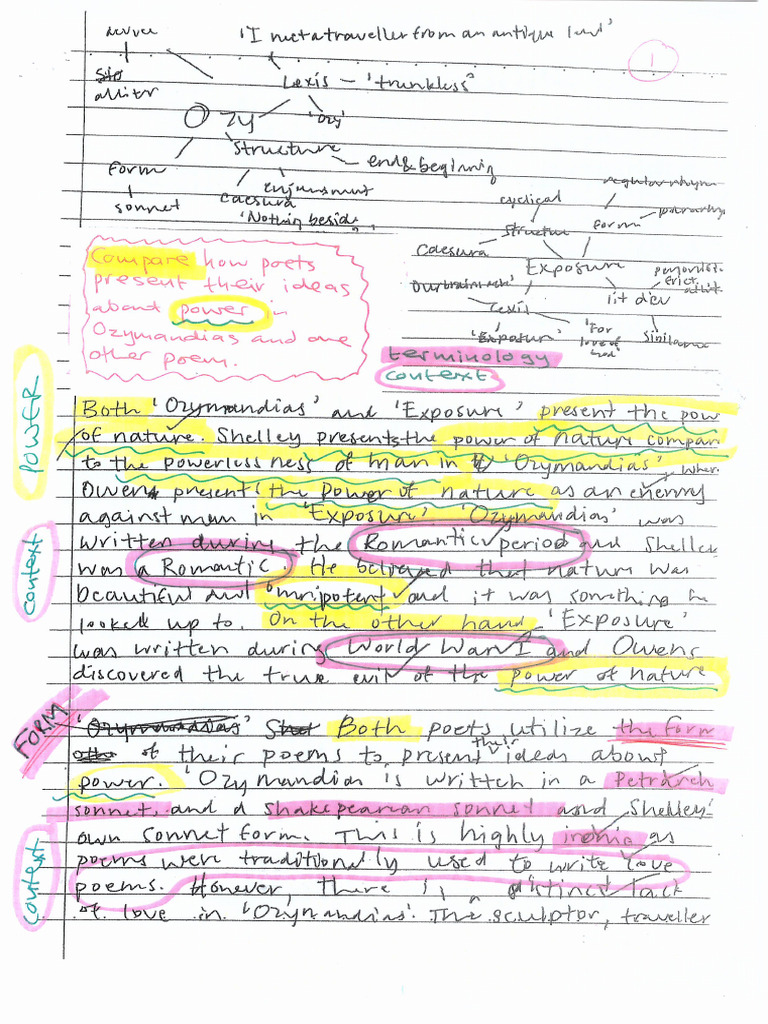 'I met a traveller from an antique land'
1
device
allitr
Lexis - 'trunkless'
Ozy
'Ozy'
Structure
end & beginning
Form
Enjambment
sonnet
Caesura
'Nothing beside'
regular rhym
cyclical
Structure
Form
Caesura
Exposure
personif.
'Our brains ach'
lit dev
Lexis
'Exposure'
'For love of God'
Similar
Compare how poets
present their ideas
about power in
Ozymandias and one
other poem.
terminology
context
POWER
Both 'Ozymandias' and 'Exposure' present the pow
of nature. Shelley presents the power of nature compar
to the powerlessness of man in 'Ozymandias', wher
Owens present the power of nature as an enemy
against men in 'Exposure' 'Ozymandias' was
context
written during the Romantic period and Shelley
was a Romantic. He believed that nature was
beautiful and omnipotent and it was something he
looked up to. On the other hand 'Exposure'
was written during World War I and Owens
discovered the true evil of the power of nature
FORM
'Ozymandias' Both poets utilize the form
of their poems to present their ideas about
power. 'Ozymandias is written in a Petrarch
sonnet, and a Shakespearian sonnet and Shelley'
own sonnet form. This is highly ironic as
context
poems were traditionally used to write love
poems. However, there is a distinct lack
of love in 'Ozymandias'. The sculptor, traveller